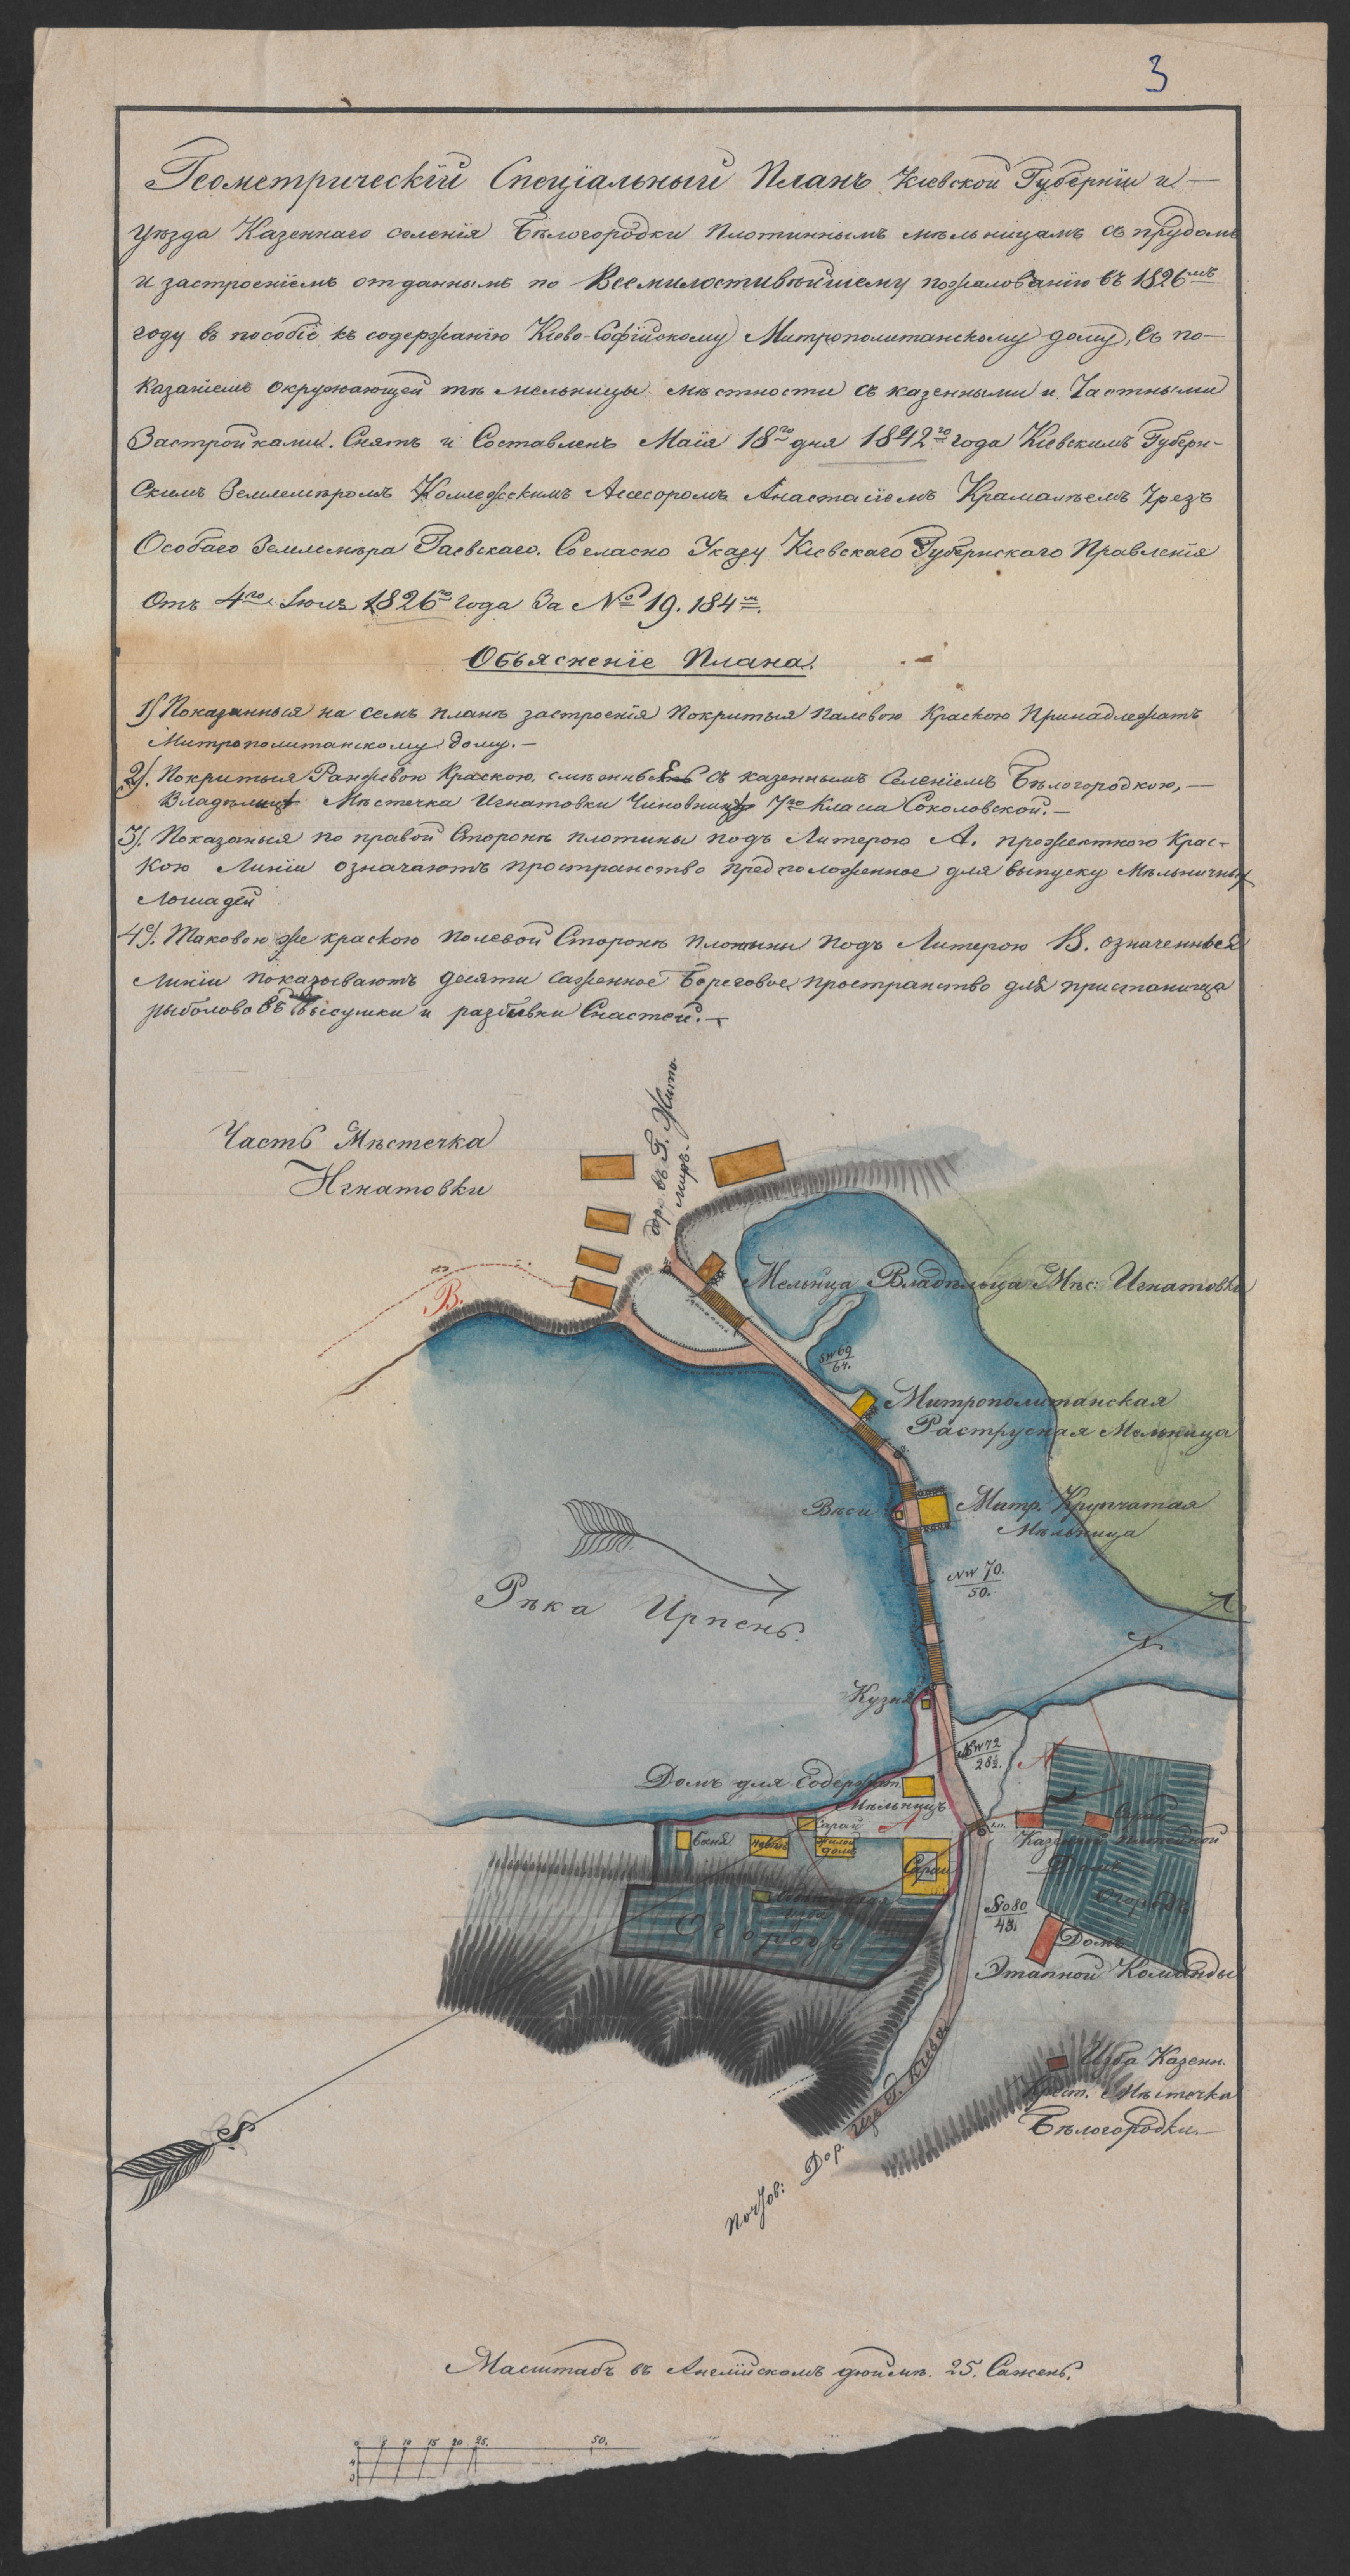 3
Геометрическій Спеціальный Планъ Кіевской Губерніи и
уѣзда Казеннаго селенія Бѣлогородки Плотиннымъ мѣльницамъ съ прудомъ
и застроеніемъ отданнымъ по Всемилостивѣйшему пожалованію въ 1826мъ
году въ пособіе къ содержанію Кіево-Софійскому Митрополитанскому дому, Съ по-
казаніемъ окружающей тѣ мельницы мѣстности съ казенными и Частными
Застройками. Снятъ и Составленъ Маія 18го дня 1842го года Кіевскимъ Губерн-
Скимъ Землемѣромъ Коллежскимъ Асессоромъ Анастасіемъ Крамалѣемъ Чрезъ
Особаго Землемѣра Гаевскаго. Согласно Указу Кіевскаго Губернскаго Правленія
Отъ 4го Іюля 1826го года За № 19.184м.
Объясненіе Плана.
1) Показанныя на семъ планѣ застроенія Покрытыя Палевою Краскою Принадлежатъ
Митрополитанскому дому.—
2). Покрытыя Ранжевою Краскою, съ казеннымъ Селеніемъ Бѣлогородкою,—
Мѣстечка Игнатовки 7го Класа Соколовской.—
3). Показаныя по правой Сторонѣ плотины подъ Литерою А. прожектною Крас-
кою Линіи означаютъ пространство предположенное для выпуску Мѣльничных
Лошадей
4). Таковою же краскою полевой Сторонѣ плотины подъ Литерою В. означенныя
Линіи показываютъ десяти саженное Береговое пространство для пристанища
рыболововъ высушки и разбивки Снастей.—
Часть Мѣстечка
Игнатовки
дор. въ Г. Жито
миръ.
В.
Мельница Владѣльца Мѣс: Игнатовки
SW 69
64.
Митрополитанская
Раструсная Мельница
Вѣсы
Митр. Крупчатая
Мѣльница
NW 70.
50.
Рѣка Ирпень.
Кузня
NW 72
28½.
А
Домъ для Содержат.
Мѣльницъ
Сарай
А
Баня
Жилой
домъ
Сарай
Сарай
Казенной питейной
Домъ
Огородъ
Огородъ
SO 80
48.
Домъ
Этапной Команды
Изба Казенн.
Крест. Мѣстечка
Бѣлогородки.—
Почтов: Дор. изъ Г. Кіева.
Масштабъ въ Англійскомъ дюймѣ. 25. Сажень.
0 5 10 15 20 25. 50.